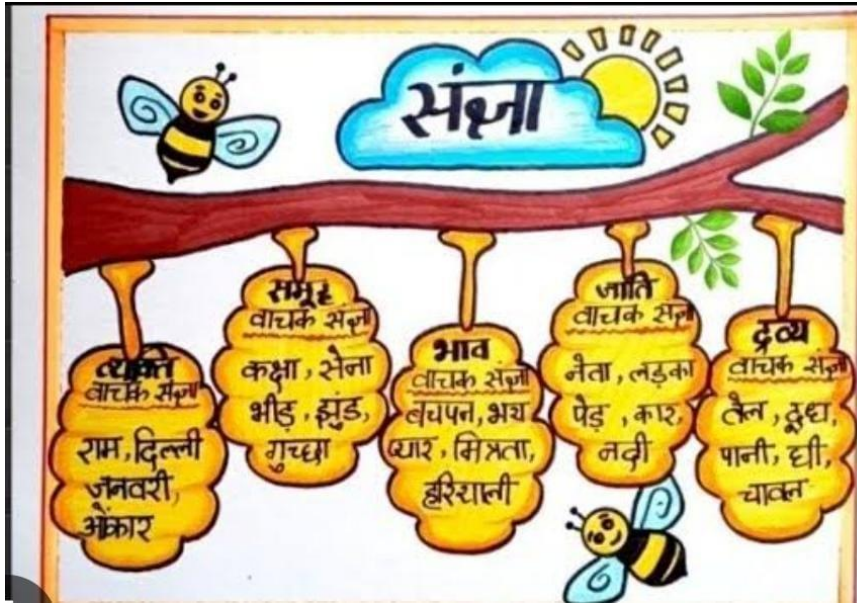 संज्ञा
व्यक्ति
वाचक संज्ञा
राम, दिल्ली
जनवरी,
ओंकार
समूह
वाचक संज्ञा
कक्षा, सेना
भीड़, झुंड,
गुच्छा
भाव
वाचक संज्ञा
बचपन, भय
प्यार, मित्रता,
हरियाली
जाति
वाचक संज्ञा
नेता, लड़का
पेड़, कार,
नदी
द्रव्य
वाचक संज्ञा
तेल, दूध,
पानी, घी,
चावल